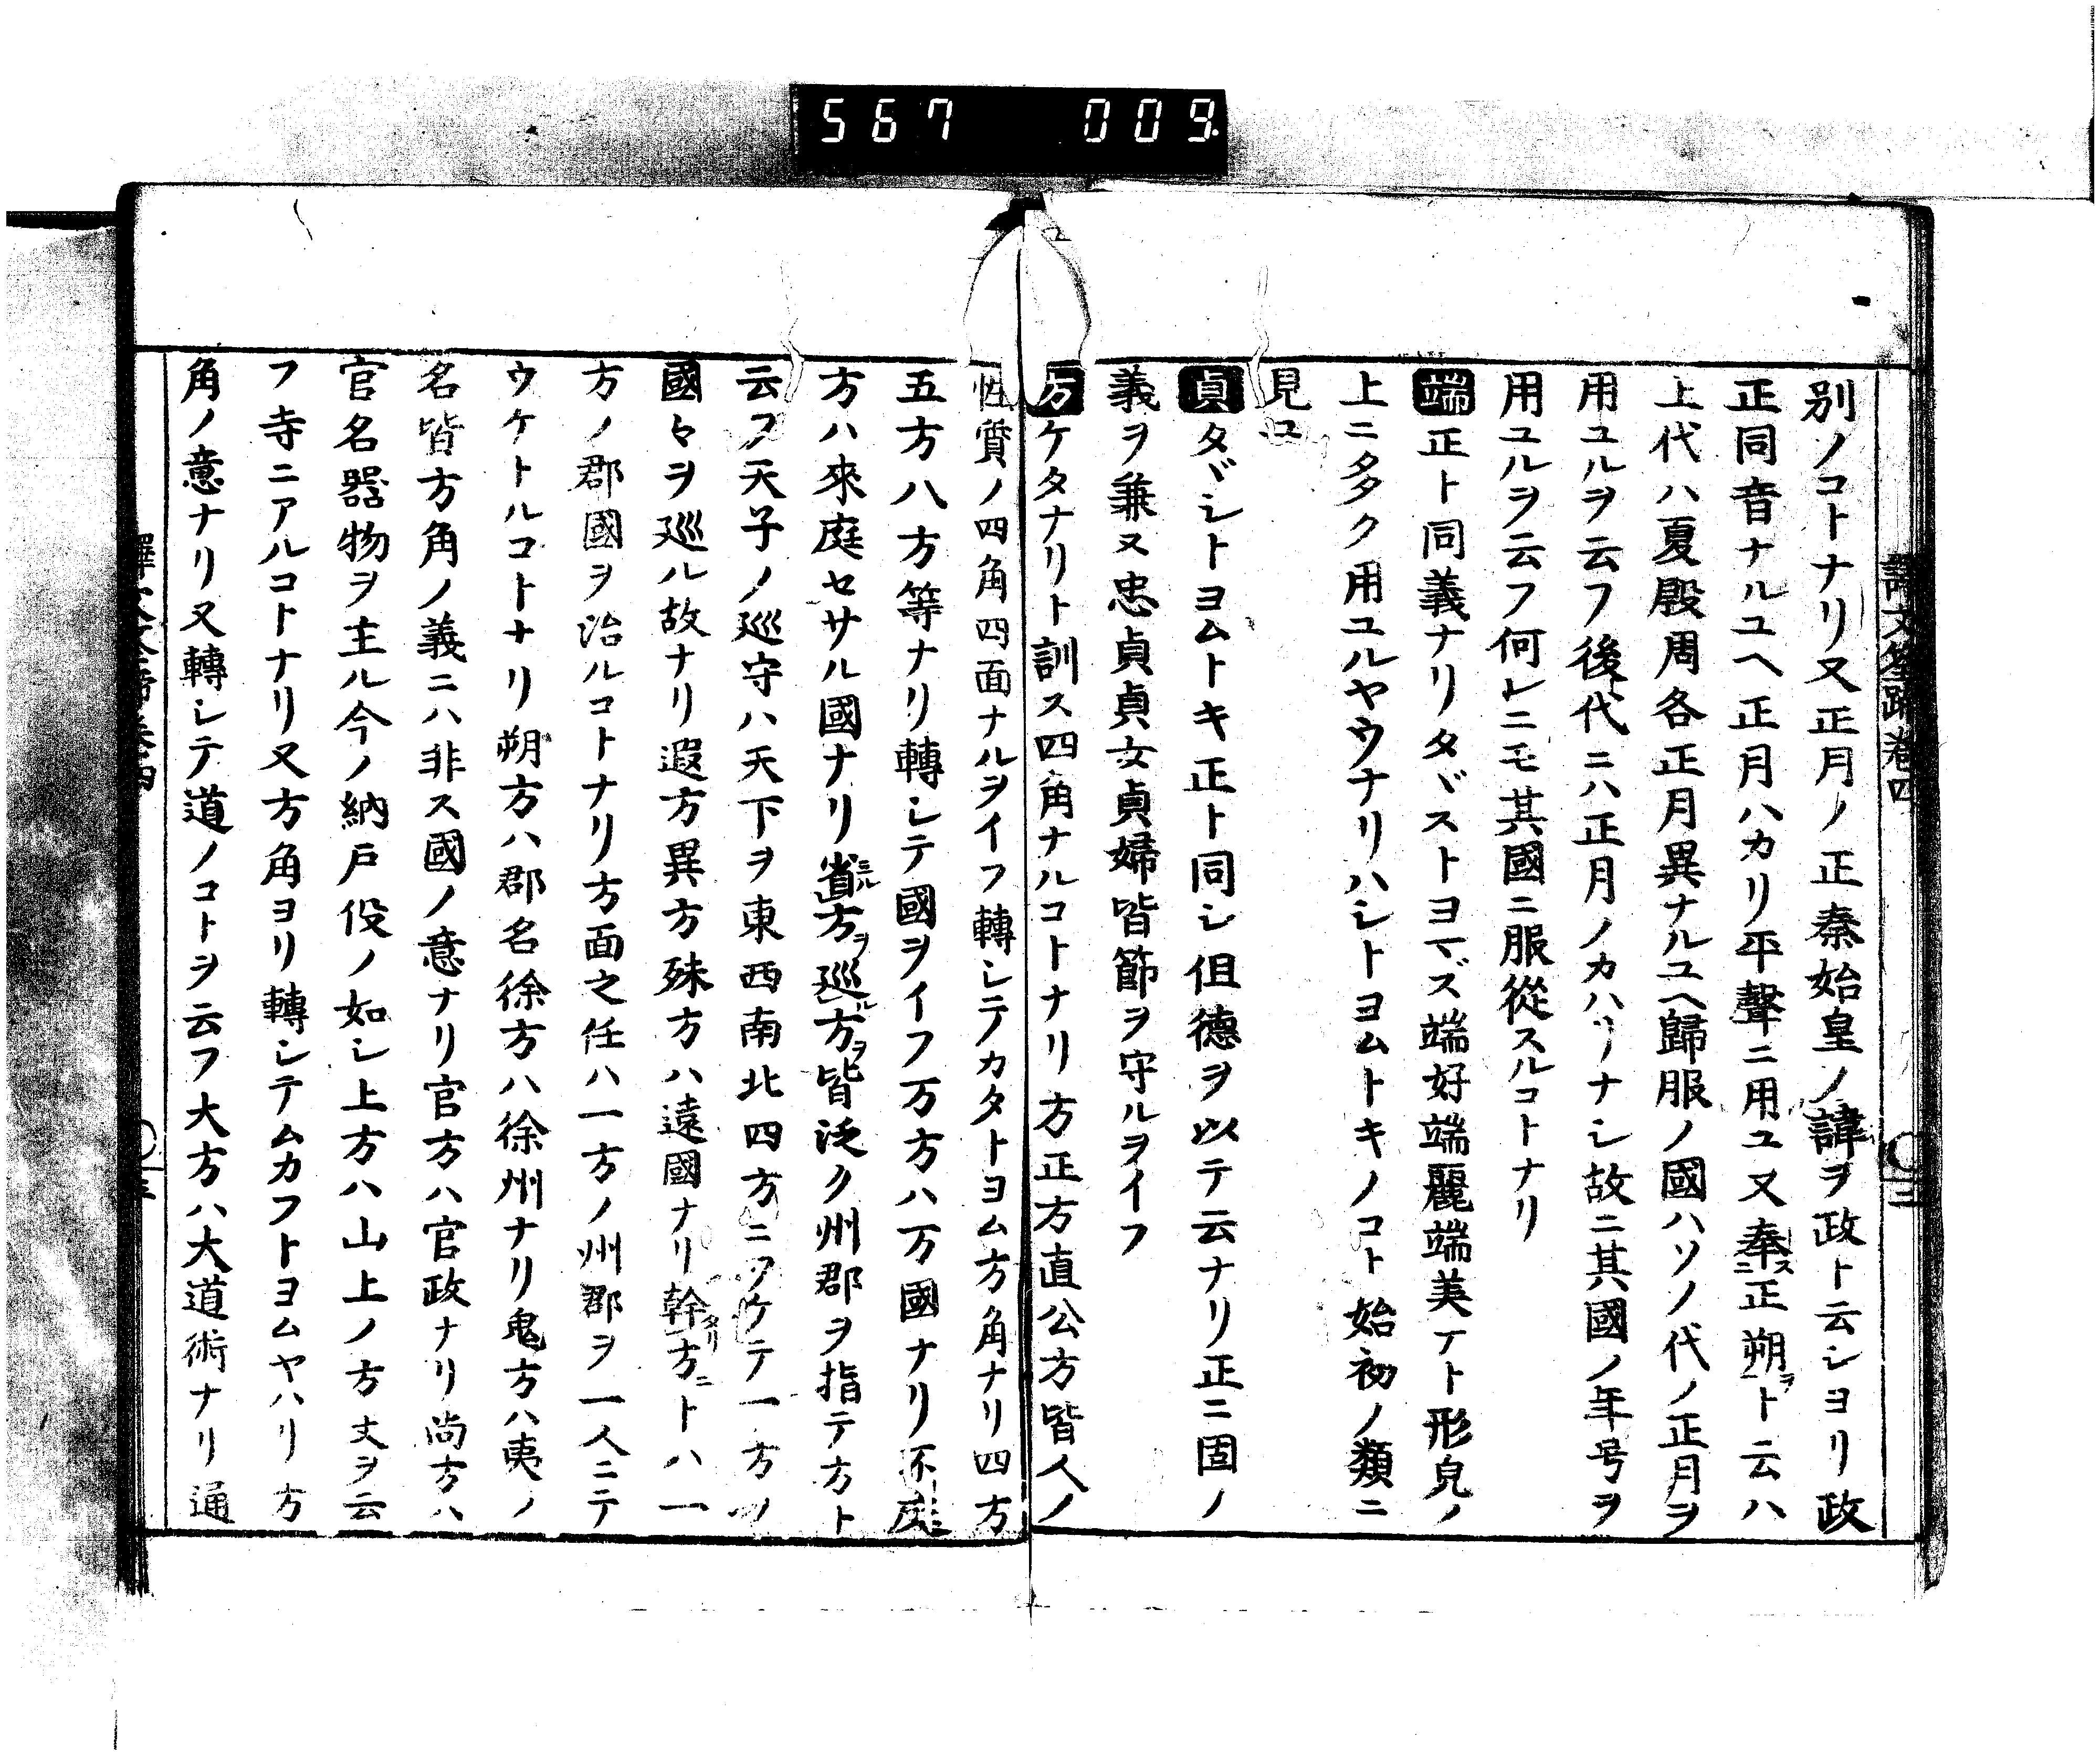 567 009
譯文筌蹄卷四
二
別ノコトナリ又正月ノ正秦始皇ノ諱ヲ政ト云シヨリ政
正同音ナルユヘ正月ハカリ平聲ニ用ユ又奉ス正朔ヲト云ハ
上代ハ夏殷周各正月異ナルユヘ歸服ノ國ハソノ代ノ正月ヲ
用ユルヲ云フ後代ニハ正月ノカハリナシ故ニ其國ノ年号ヲ
用ユルヲ云フ何レニモ其國ニ服從スルコトナリ
端正ト同義ナリタヾストヨマズ端好端麗端美アト形皃ノ
上ニ多ク用ユルヤウナリハシトヨムトキノコト始初ノ類ニ
見ユ
貞タヾシトヨムトキ正ト同シ但德ヲ以テ云ナリ正ニ固ノ
義ヲ兼又忠貞貞女貞婦皆節ヲ守ルヲイフ
方ケタナリト訓ス四角ナルコトナリ方正方直公方皆人ノ
性質ノ四角四面ナルヲイフ轉シテカタトヨム方角ナリ四方
五方八方等ナリ轉シテ國ヲイフ万方ハ万國ナリ不庭
方ハ來庭セサル國ナリ省ミル方ヲ巡ル方ヲ皆泛ク州郡ヲ指テ方ト
云フ天子ノ巡守ハ天下ヲ東西南北四方ニワケテ一方ツヽ
國々ヲ巡ル故ナリ遐方異方殊方ハ遠國ナリ幹タリ方ニトハ一
方ノ郡國ヲ治ルコトナリ方面之任ハ一方ノ州郡ヲ一人ニテ
ウケトルコトナリ朔方ハ郡名徐方ハ徐州ナリ鬼方ハ夷ノ
名皆方角ノ義ニハ非ス國ノ意ナリ官方ハ官政ナリ尚方ハ
官名器物ヲ主ル今ノ納戸役ノ如シ上方ハ山上ノ方丈ヲ云
フ寺ニアルコトナリ又方角ヨリ轉シテムカフトヨムヤハリ方
角ノ意ナリ又轉シテ道ノコトヲ云フ大方ハ大道術ナリ通